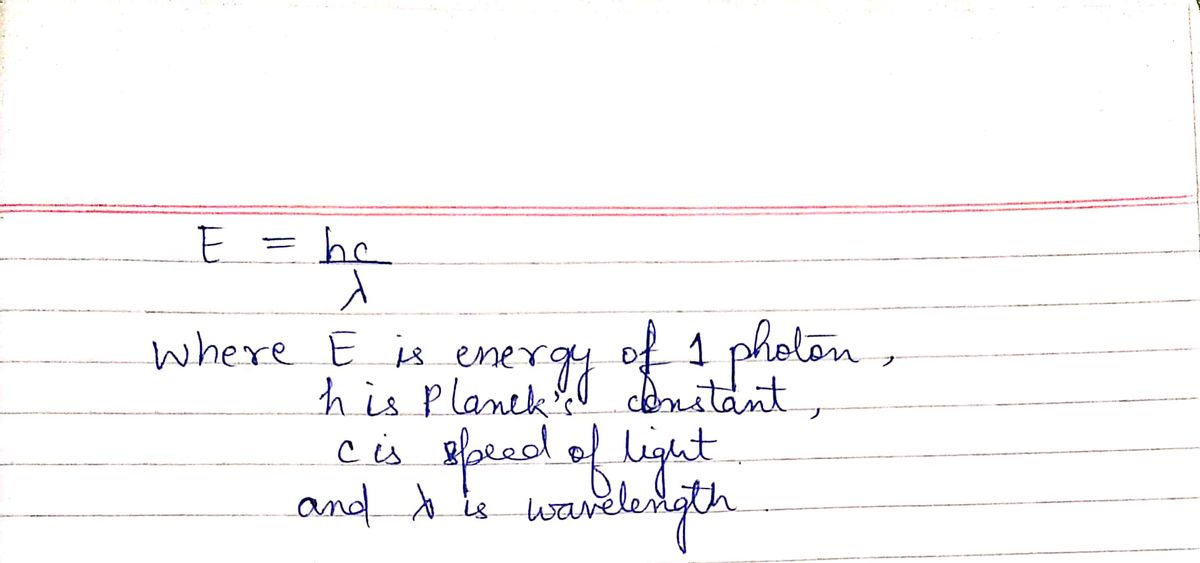 E = hc
λ
where E is energy of 1 photon,
h is Planck's constant,
c is speed of light
and λ is wavelength